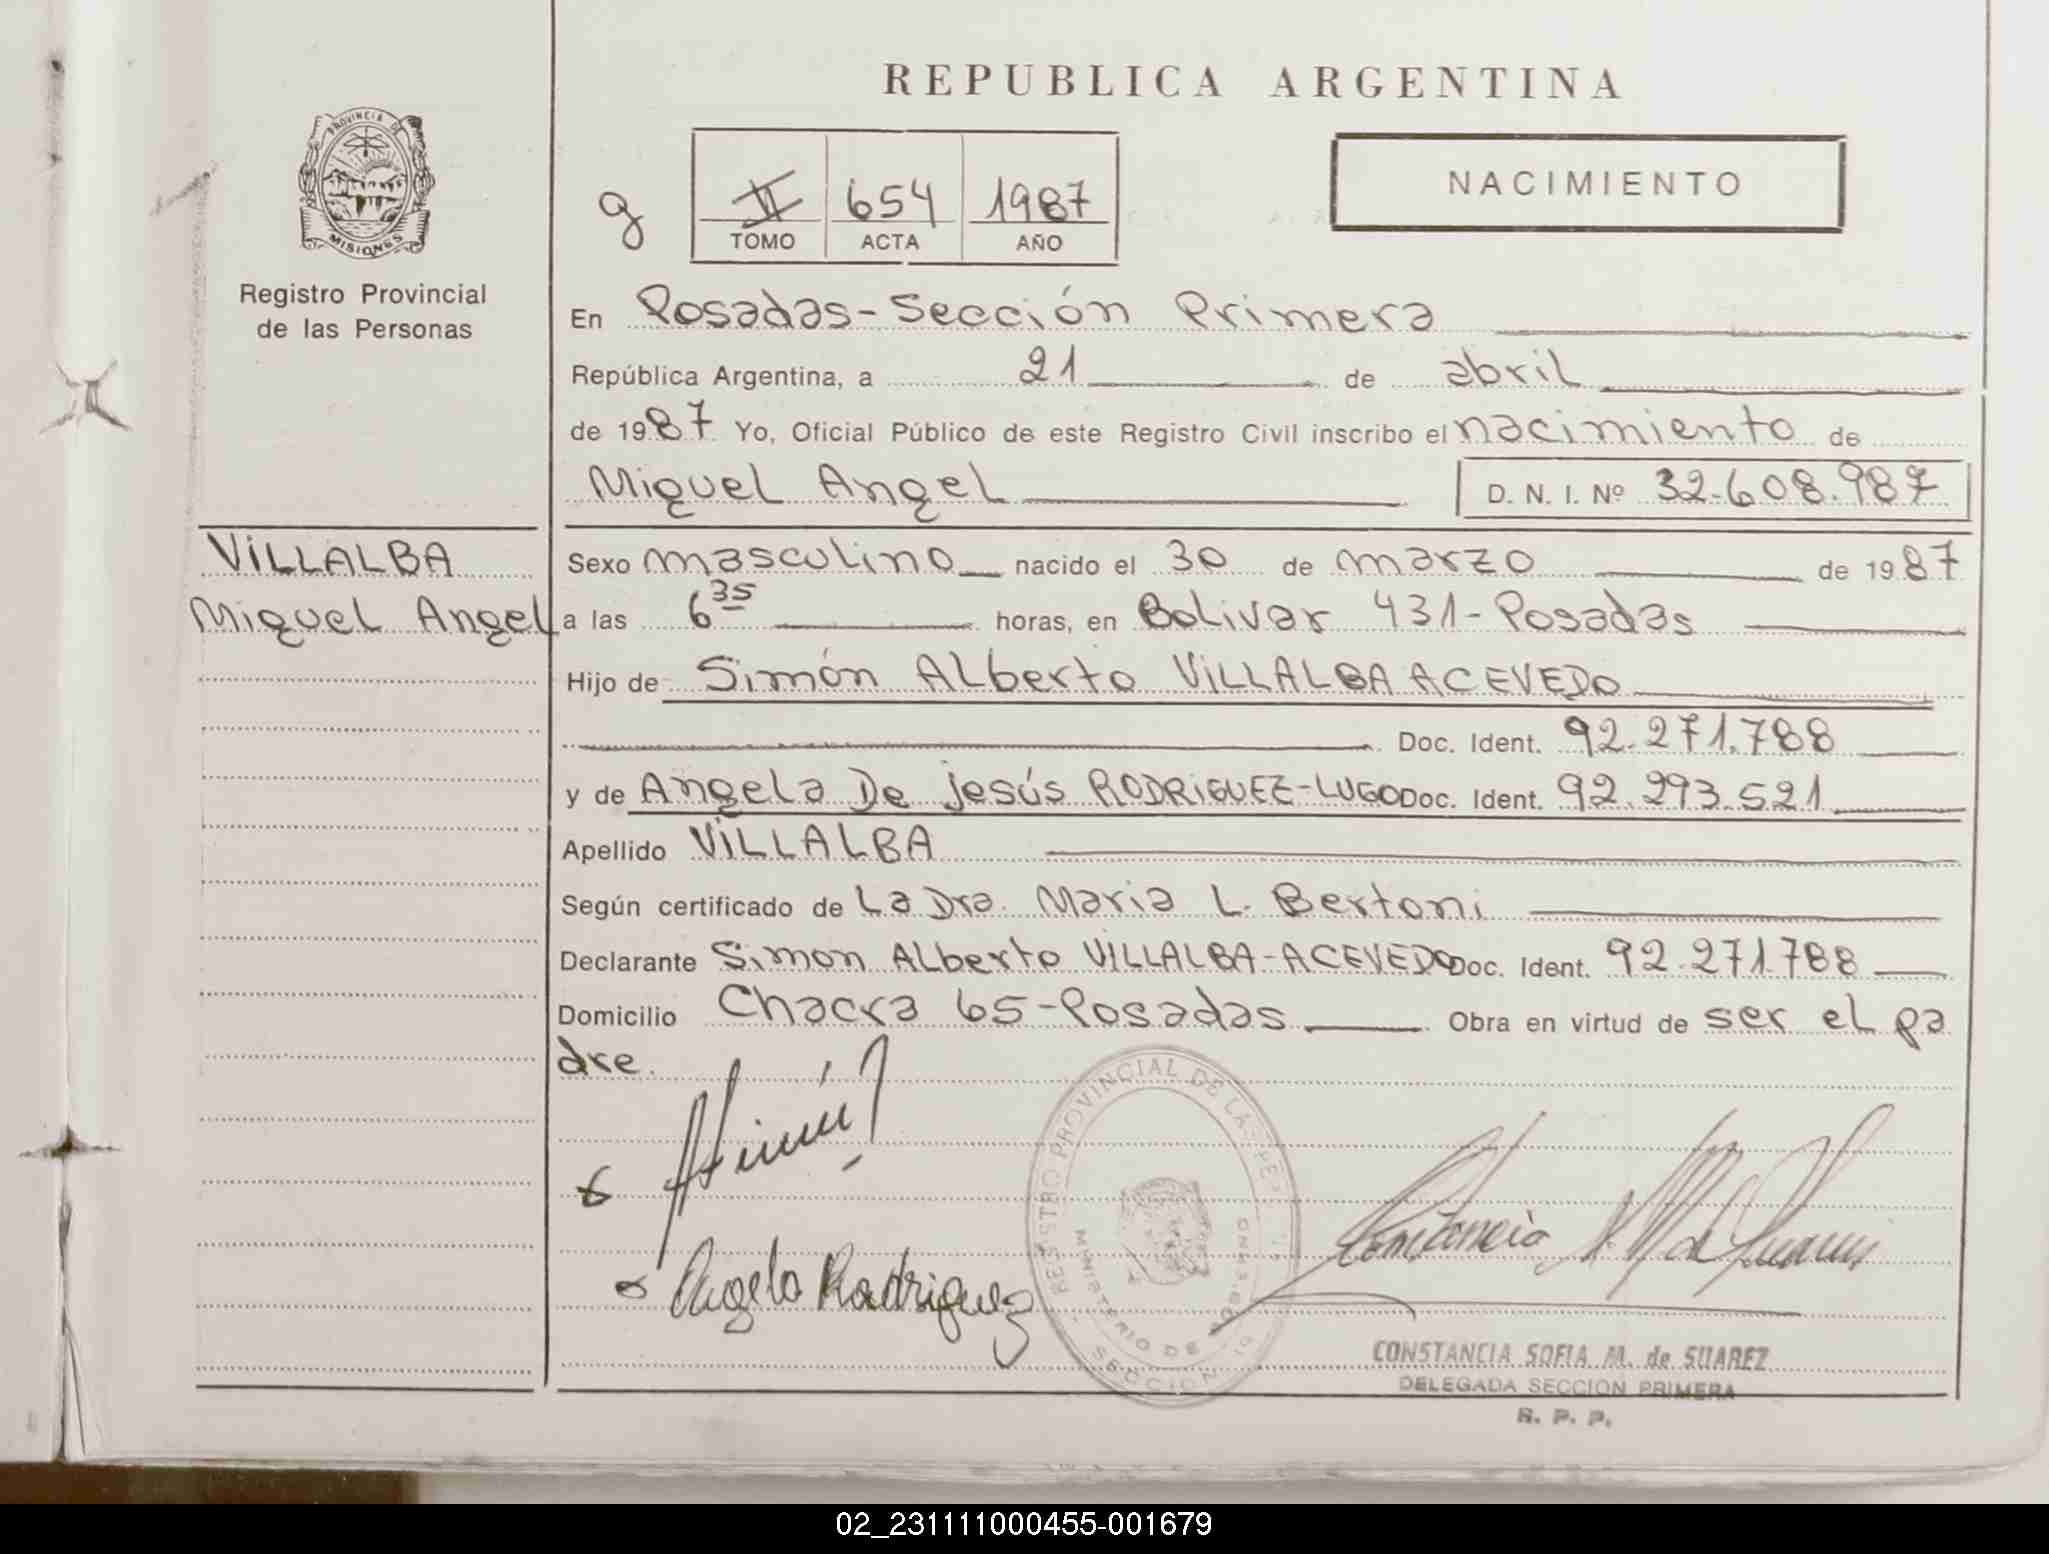 REPUBLICA ARGENTINA
PROVINCIA DE
MISIONES
Registro Provincial
de las Personas
g
II 654 1987
TOMO ACTA AÑO
NACIMIENTO
En Posadas-Sección Primera
República Argentina, a 21 de abril
de 1987 Yo, Oficial Público de este Registro Civil inscribo el nacimiento de
Miguel Angel D. N. I. Nº 32.608.987
VILLALBA
Miguel Angel
Sexo masculino nacido el 30 de marzo de 1987
a las 6 35 horas, en Bolivar 431-Posadas
Hijo de Simón Alberto VILLALBA ACEVEDO
Doc. Ident. 92.271.788
y de Angela De Jesús RODRIGUEZ-LUGO Doc. Ident. 92.293.521
Apellido VILLALBA
Según certificado de La Dra. Maria L. Bertoni
Declarante Simon Alberto VILLALBA-ACEVEDO Doc. Ident. 92.271.788
Domicilio Chacra 65-Posadas Obra en virtud de ser el pa
dre.
REGISTRO PROVINCIAL DE LAS PE
MINISTERIO DE GOBIERNO
SECCION
Angela Rodriguez
CONSTANCIA SOFIA M. de SUAREZ
DELEGADA SECCION PRIMERA
R. P. P.
02_231111000455-001679